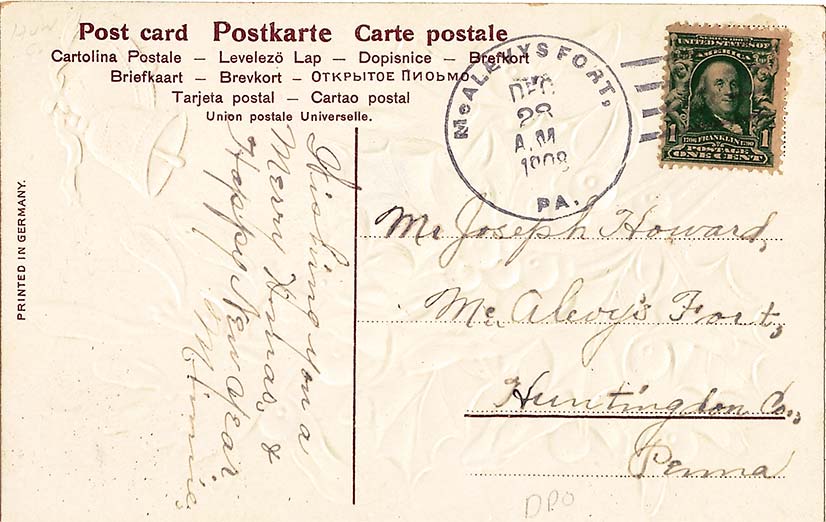 Post card Postkarte Carte postale
Cartolina Postale — Levelező Lap — Dopisnice — Brefkort
Briefkaart — Brevkort — ОТКРЫТОЕ ПИСЬМО
Tarjeta postal — Cartao postal
Union postale Universelle.
McALEVYSFORT,
DEC
28
A.M
1908
PA.
SERIES 1902
UNITED STATES OF
AMERICA
1706 FRANKLIN 1790
1 POSTAGE 1
ONE CENT
PRINTED IN GERMANY.
Wishing you a
Merry Xmas, &
Happy New Year.
Minnie.
Mr Joseph Howard,
Mc Alevy's Fort,
Huntingdon Co.,
Penna
DPO